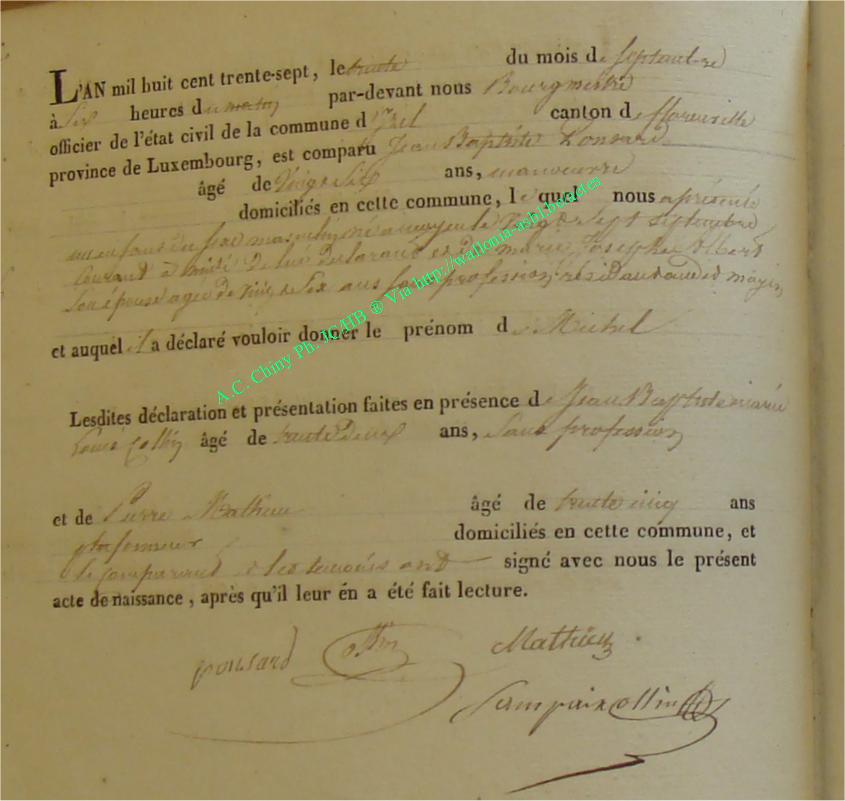 L'AN mil huit cent trente-sept, le trente du mois de septembre
à six heures du matin par-devant nous Bourgmestre
officier de l'état civil de la commune d'Izel canton de florenville
province de Luxembourg, est comparu Jean Baptiste Ponsard
âgé de vingt six ans, manoeuvre
domiciliés en cette commune, lequel nous a présenté
un enfant du sexe masculin né a moyen le vingt sept septembre
courant à midi de lui déclarant et de marie Josephe
son épouse agée de vingt six ans sans profession résidant audit moyen
et auquel il a déclaré vouloir donner le prénom de Michel
Lesdites déclaration et présentation faites en présence de Jean Baptiste marie
Louis Collin âgé de trente deux ans, sans profession
et de Pierre Mathieu âgé de trente cinq ans
plafonneur domiciliés en cette commune, et
le comparant et les temoins ont signé avec nous le présent
acte de naissance, après qu'il leur en a été fait lecture.
ponsard Mathieu
A.C. Chiny Ph. JC/HB ® Via http://wallonia-asbl.be/actes